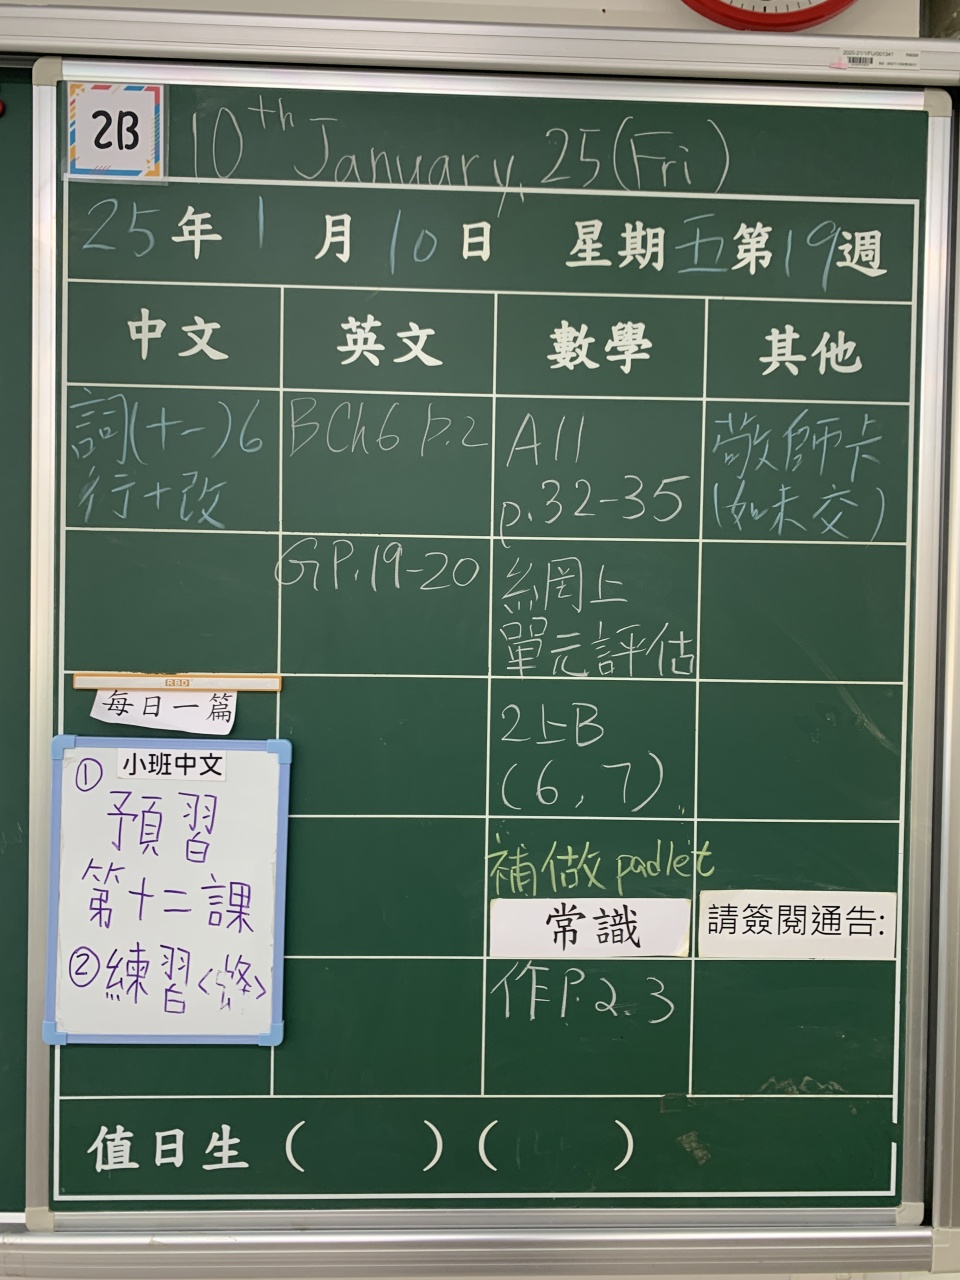 2B
10th January, 25 (Fri)
25年1月10日 星期五第19週
中文 英文 數學 其他
詞(十一)6
行+改
BCh6 P.2
A11
p.32-35
敬師卡
(如未交)
GP.19-20
網上
單元評估
RBD
每日一篇
2上B
(6, 7)
小班中文
① 預習
第十二課
② 練習
補做padlet
常識
請簽閱通告:
作P.2.3
值日生 ( ) ( )